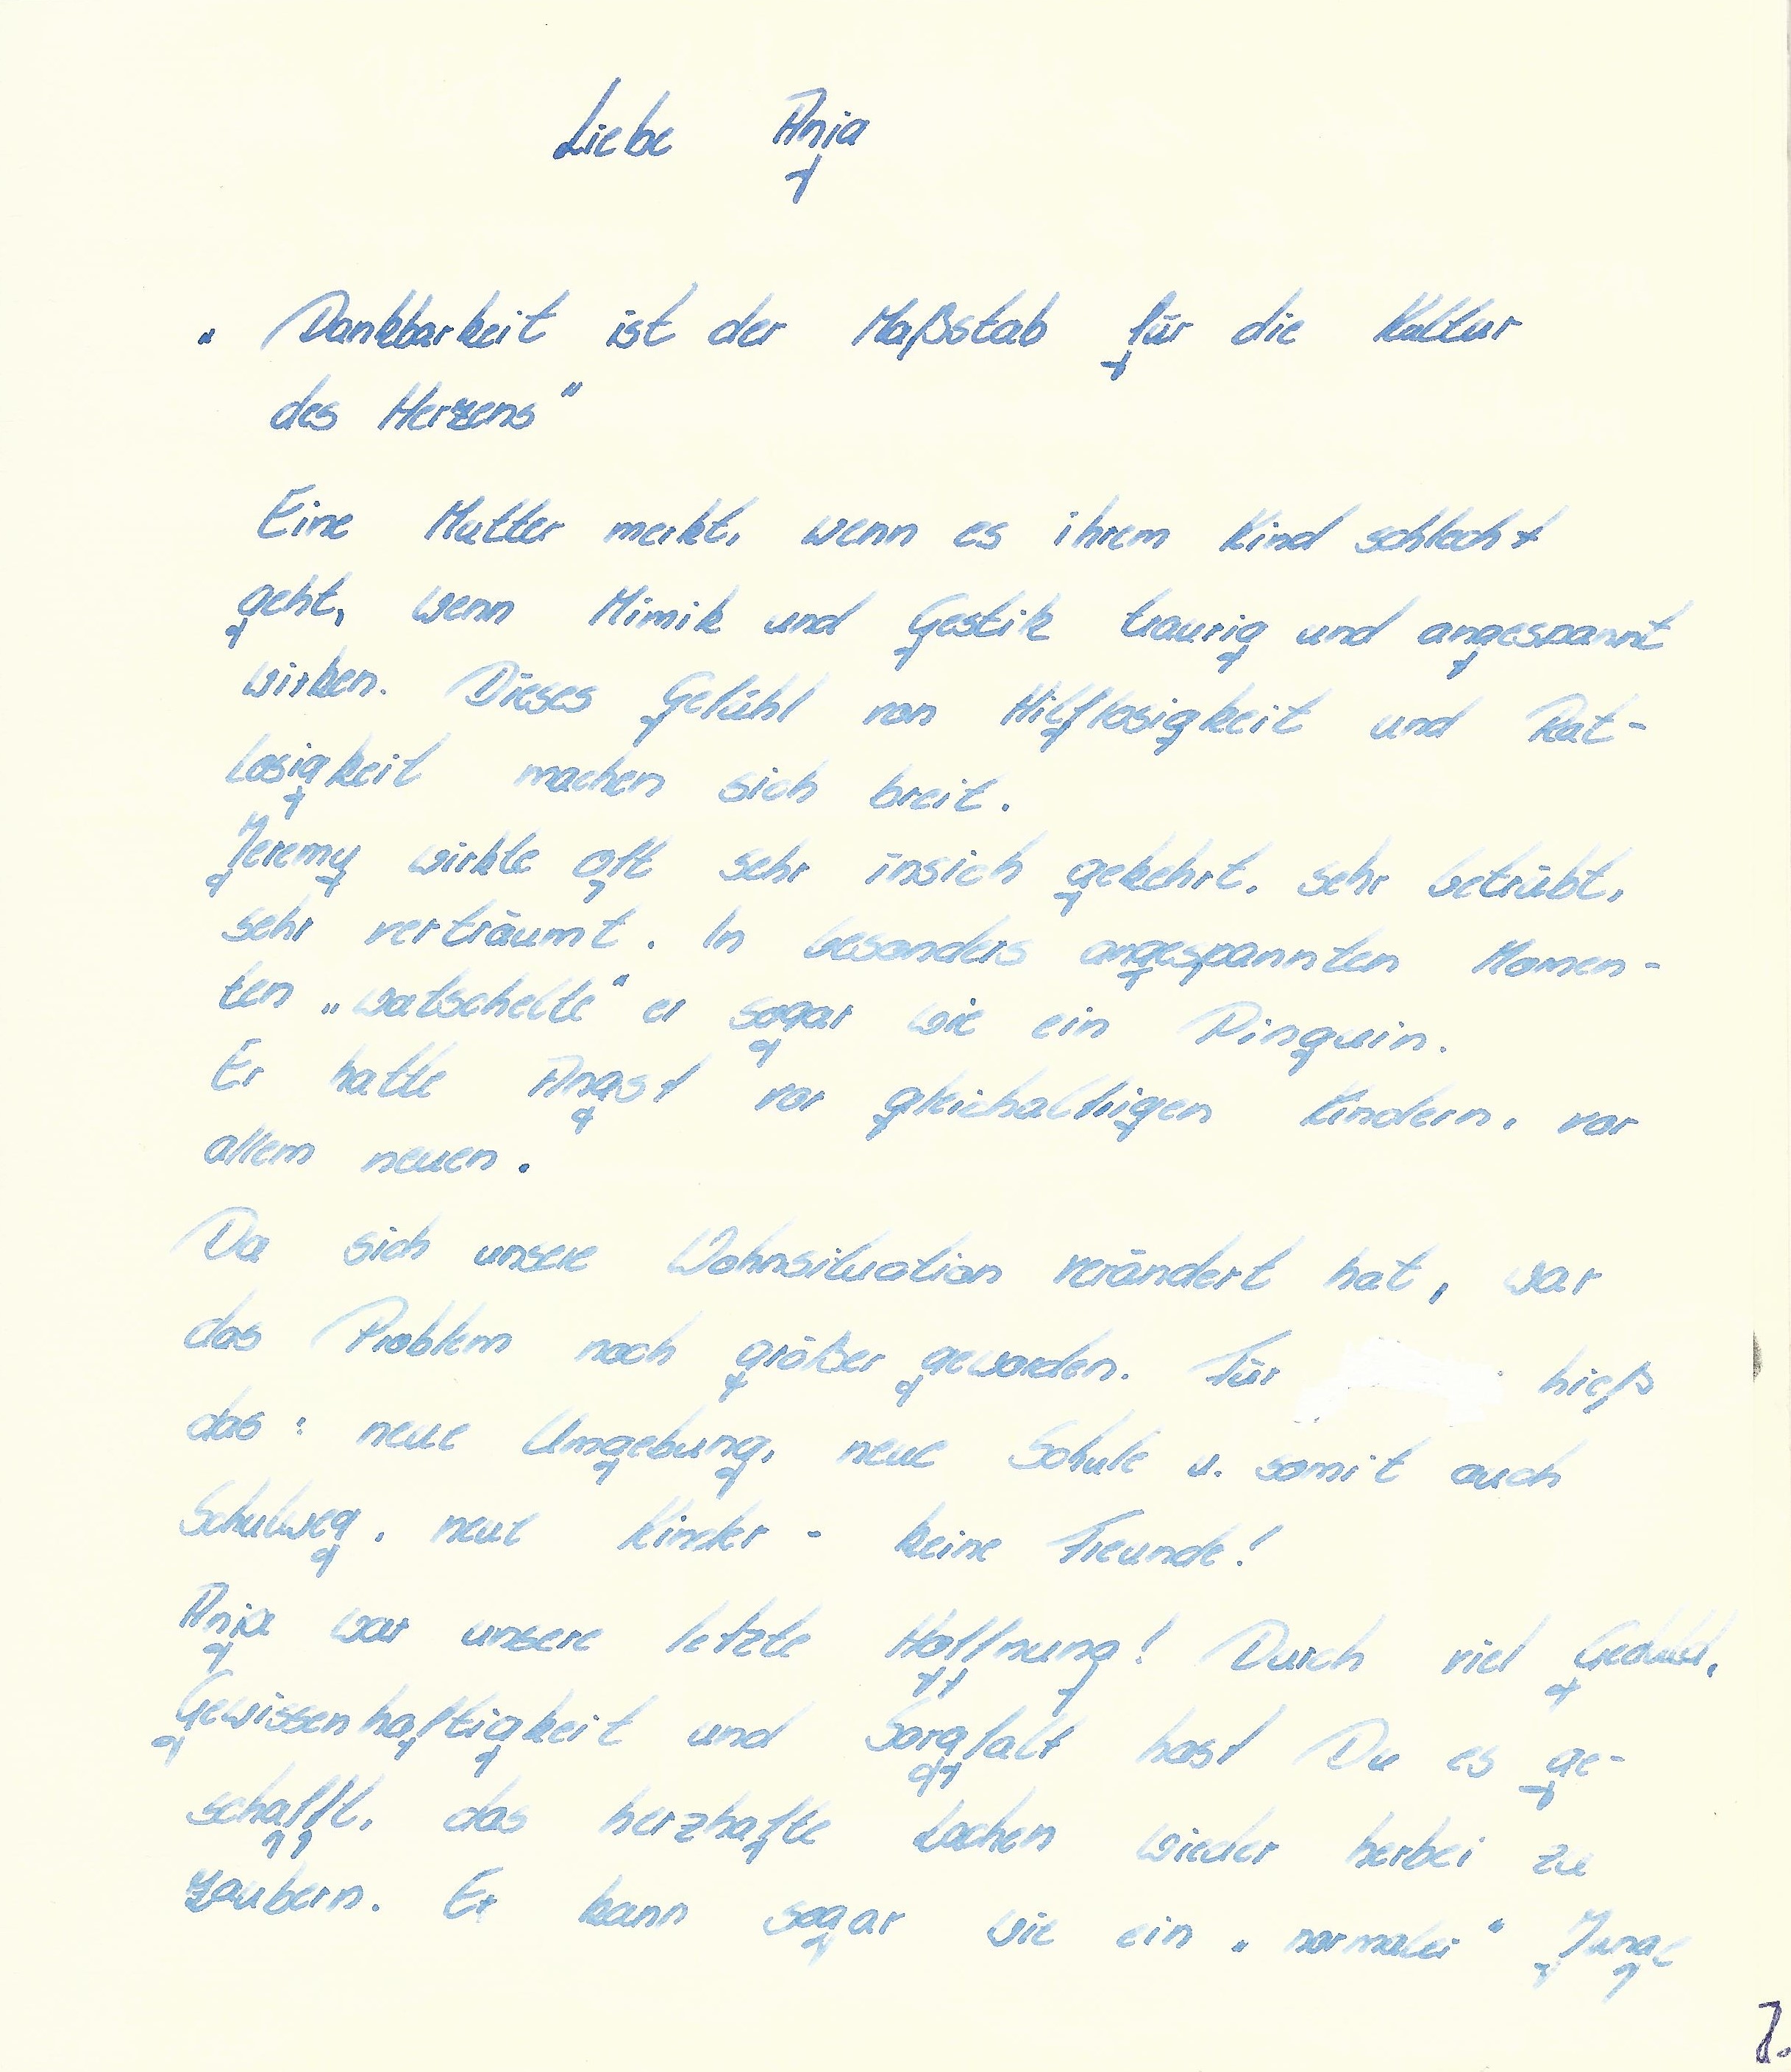 Liebe Anja
„Dankbarkeit ist der Maßstab für die Kultur
des Herzens“
Eine Mutter merkt, wenn es ihrem Kind schlecht
geht, wenn Mimik und Gestik traurig und angespannt
wirken. Dieses Gefühl von Hilflosigkeit und Rat-
losigkeit machen sich breit.
Jeremy wirkte oft sehr insich gekehrt, sehr betrübt,
sehr verträumt. In besonders angespannten Momen-
ten „watschelte“ er sogar wie ein Pinguin.
Er hatte Angst vor gleichaltrigen Kindern, vor
allem neuen.
Da sich unsere Wohnsituation verändert hat, war
das Problem noch größer geworden. Für hieß
das: neue Umgebung, neue Schule u. somit auch
Schulweg, neue Kinder - keine Freunde!
Anja war unsere letzte Hoffnung! Durch viel Geduld,
Gewissenhaftigkeit und Sorgfalt hast Du es ge-
schafft, das herzhafte Lachen wieder herbei zu
zaubern. Er kann sogar wie ein „normaler“ Junge